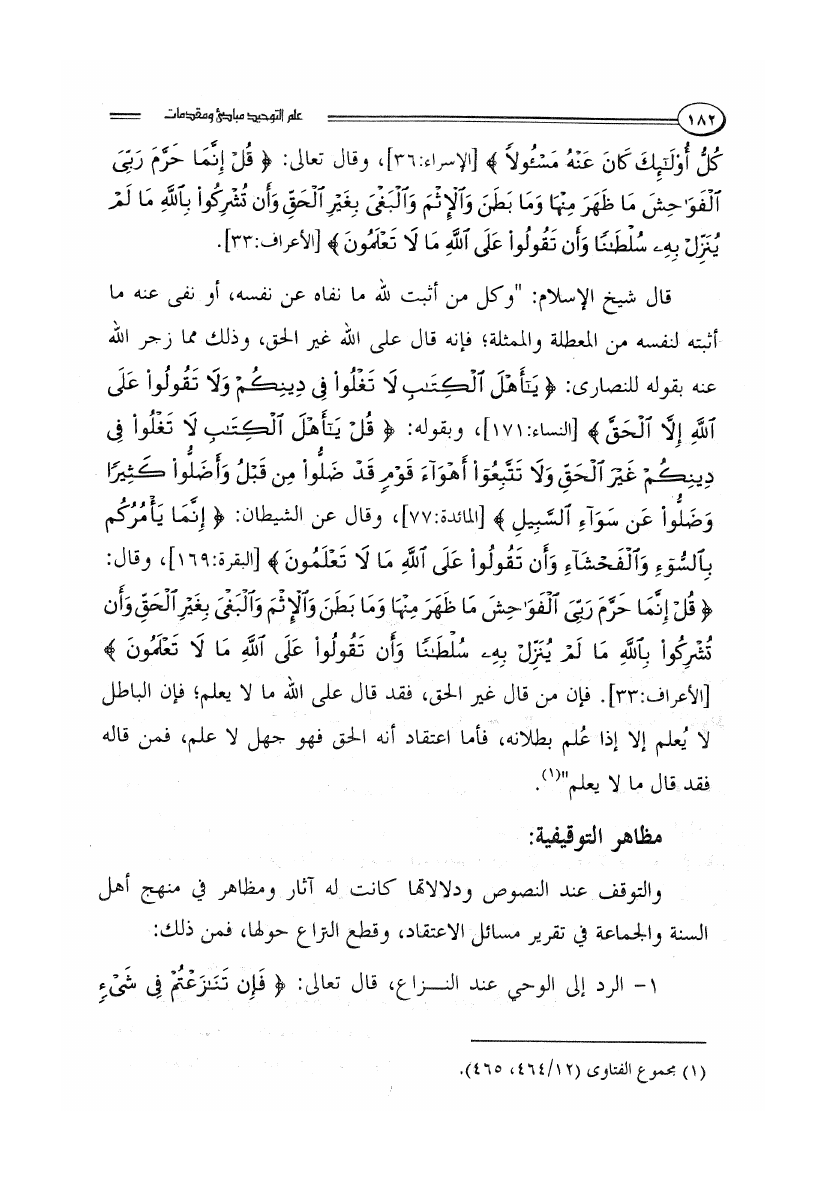 ١٨٢ علم التوحيد مبادئ ومقدمات
كُلُّ أُوْلَـٰٓئِكَ كَانَ عَنْهُ مَسْـُٔولاً ﴾ [الإسراء:٣٦]، وقال تعالى: ﴿ قُلْ إِنَّمَا حَرَّمَ رَبِّىَ
ٱلْفَوَٰحِشَ مَا ظَهَرَ مِنْهَا وَمَا بَطَنَ وَٱلْإِثْمَ وَٱلْبَغْىَ بِغَيْرِ ٱلْحَقِّ وَأَن تُشْرِكُوا۟ بِٱللَّهِ مَا لَمْ
يُنَزِّلْ بِهِۦ سُلْطَـٰنًا وَأَن تَقُولُوا۟ عَلَى ٱللَّهِ مَا لَا تَعْلَمُونَ ﴾ [الأعراف:٣٣].
قال شيخ الإسلام: "وكل من أثبت لله ما نفاه عن نفسه، أو نفى عنه ما
أثبته لنفسه من المعطلة والممثلة؛ فإنه قال على الله غير الحق، وذلك مما زجر الله
عنه بقوله للنصارى: ﴿ يَـٰٓأَهْلَ ٱلْكِتَـٰبِ لَا تَغْلُوا۟ فِى دِينِكُمْ وَلَا تَقُولُوا۟ عَلَى
ٱللَّهِ إِلَّا ٱلْحَقَّ ﴾ [النساء:١٧١]، وبقوله: ﴿ قُلْ يَـٰٓأَهْلَ ٱلْكِتَـٰبِ لَا تَغْلُوا۟ فِى
دِينِكُمْ غَيْرَ ٱلْحَقِّ وَلَا تَتَّبِعُوٓا۟ أَهْوَآءَ قَوْمٍ قَدْ ضَلُّوا۟ مِن قَبْلُ وَأَضَلُّوا۟ كَثِيرًا
وَضَلُّوا۟ عَن سَوَآءِ ٱلسَّبِيلِ ﴾ [المائدة:٧٧]، وقال عن الشيطان: ﴿ إِنَّمَا يَأْمُرُكُم
بِٱلسُّوٓءِ وَٱلْفَحْشَآءِ وَأَن تَقُولُوا۟ عَلَى ٱللَّهِ مَا لَا تَعْلَمُونَ ﴾ [البقرة:١٦٩]، وقال:
﴿ قُلْ إِنَّمَا حَرَّمَ رَبِّىَ ٱلْفَوَٰحِشَ مَا ظَهَرَ مِنْهَا وَمَا بَطَنَ وَٱلْإِثْمَ وَٱلْبَغْىَ بِغَيْرِ ٱلْحَقِّ وَأَن
تُشْرِكُوا۟ بِٱللَّهِ مَا لَمْ يُنَزِّلْ بِهِۦ سُلْطَـٰنًا وَأَن تَقُولُوا۟ عَلَى ٱللَّهِ مَا لَا تَعْلَمُونَ ﴾
[الأعراف:٣٣]. فإن من قال غير الحق، فقد قال على الله ما لا يعلم؛ فإن الباطل
لا يُعلم إلا إذا عُلم بطلانه، فأما اعتقاد أنه الحق فهو جهل لا علم، فمن قاله
فقد قال ما لا يعلم"(١).
مظاهر التوقيفية:
والتوقف عند النصوص ودلالاتها كانت له آثار ومظاهر في منهج أهل
السنة والجماعة في تقرير مسائل الاعتقاد، وقطع النزاع حولها، فمن ذلك:
١- الرد إلى الوحي عند النـــزاع، قال تعالى: ﴿ فَإِن تَنَـٰزَعْتُمْ فِى شَىْءٍ
(١) مجموع الفتاوى (٤٦٤/١٢، ٤٦٥).